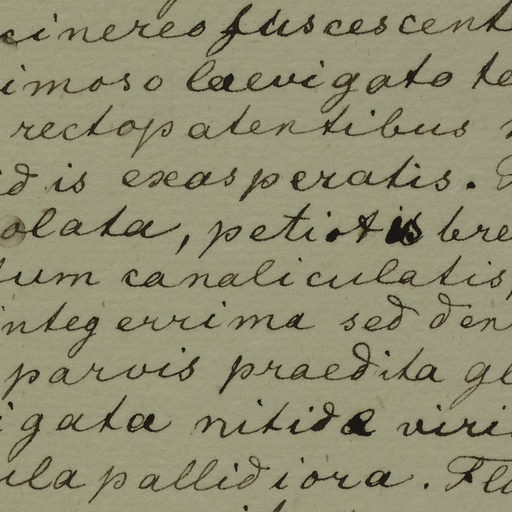 cinereo fuscescent
imoso laevigato te
rectopatentibus
idis exasperatis.
olata, petiolis bre
tum canaliculatis,
integerrima sed den
parvis praedita gl
igata nitida viri
ula pallidiora. Flo